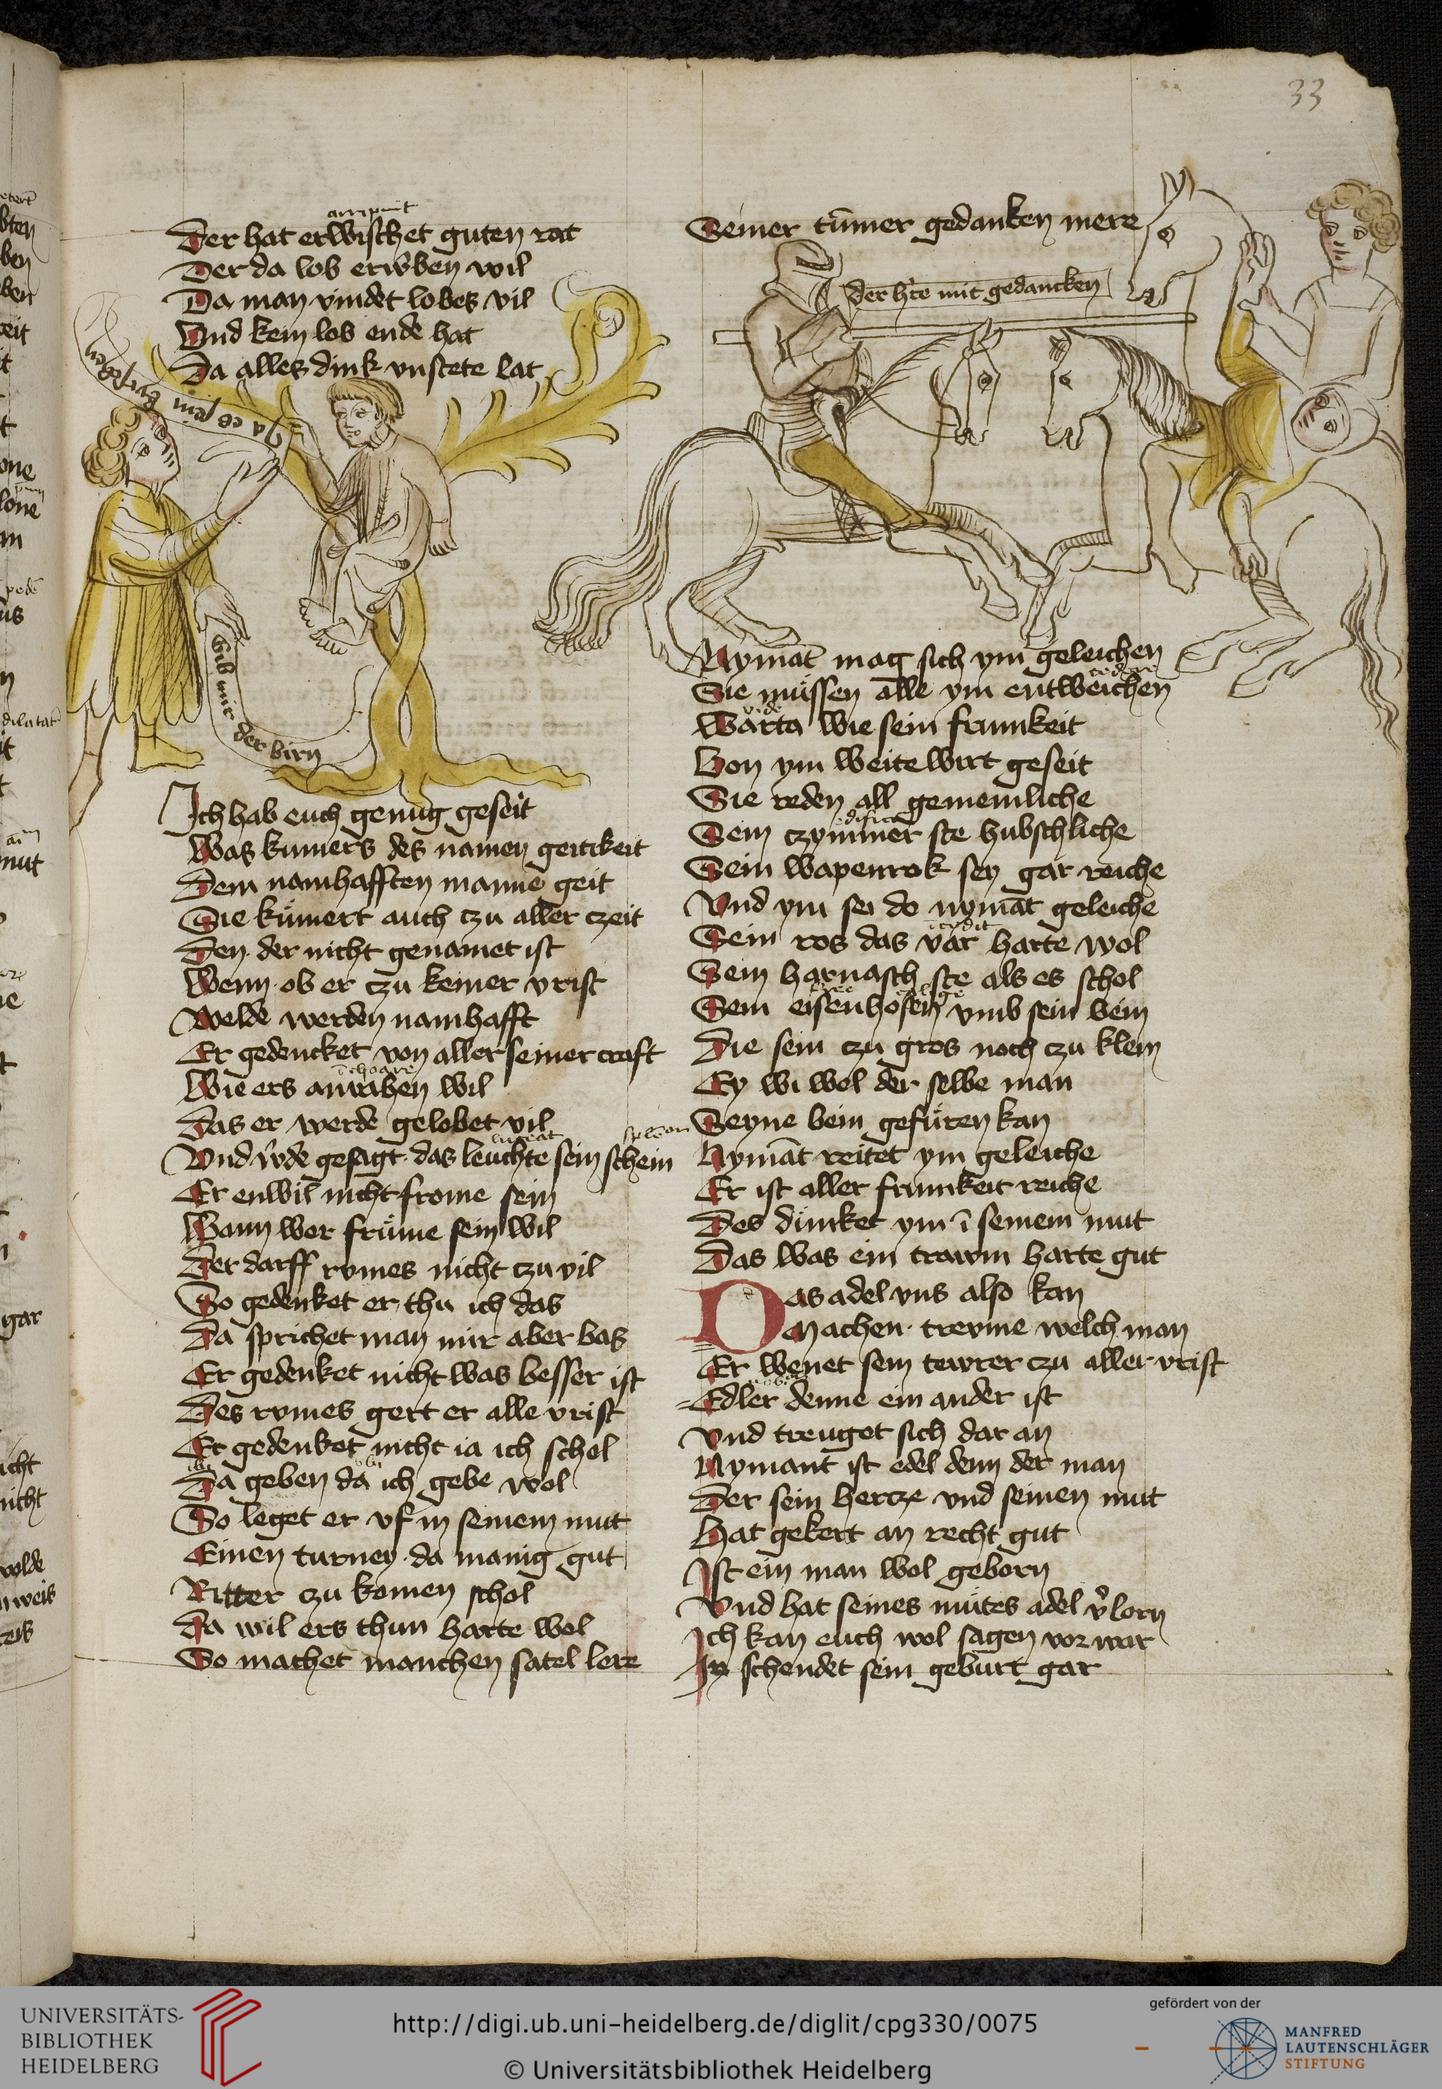 33
arripuit
Der hat erwischet guten rat
Der da lob erwben wil
Da man vindet lobes vil
Vnd kein lob ende hat
Da alles dink vnstete lat
Ja es sein
Gib mir der birn
Ich hab euch genug geseit
Was kumers des namen geitikeit
Dem namhafften manne geit
Sie kümert auch czu aller czeit
Den der nicht genamet ist
Wenn ob er czu keiner vrist
Welde werden namhafft
Er gedencket von aller seiner craft
Wie ers anvahen wil
Das er werde gelobet vil
luceat
Vnd wde gesagt das leuchte sein schein
Er enwil nicht frome sein
Wann wer frume sein wil
Der darff rvmes nicht czu vil
So gedenket er thu ich das
Da sprichet man mir aber bas
Er gedenket nicht was besser ist
Des rvmes gert er alle vrist
Er gedenket nicht ia ich schol
ibi ubi
Da geben da ich gebe wol
So leget er vf in seinem mut
Einen turney da manig gut
Ritter czu komen schol
Da wil ers thun harte wol
So machet manchen satel lere
Seiner tumer gedanken mere
der hte mit gedancken
Nymāt mag sich ym geleichen
cedere
Sie müssen alle ym entweichen
vide
Warta wie sein frumkeit
Von ym weite wirt geseit
Sie reden all gemeinliche
Sein czymmer ste hubschliche
Sein wapenrok sey gar reiche
Vnd ym sei do nymāt geleiche
Sein ros das var harte wol
Sein harnasch ste als es schol
Sein eisenhosen vmb sein bein
Die sein czu gros noch czu klein
Ey wi wol der selbe man
Seyne bein gefüren kan
Nymāt reitet ym geleiche
Er ist aller frumkeit reiche
Des dunket ym ī seinem mut
Das was ein trawm harte gut
Das adel vns also kan
Machen trevme welch man
Er wenet sein tewrer czu aller vrist
Edler denne ein ander ist
Vnd treuget sich dar an
Nymant ist edel denn der man
Der sein hercze vnd seinen mut
Hat gekert an recht gut
Ist ein man wol geborn
Vnd hat seines mutes adel vlorn
Ich kan euch wol sagen vor war
In schendet sein geburt gar
UNIVERSITÄTS-
BIBLIOTHEK
HEIDELBERG
http://digi.ub.uni-heidelberg.de/diglit/cpg330/0075
© Universitätsbibliothek Heidelberg
gefördert von der
MANFRED
LAUTENSCHLÄGER
STIFTUNG